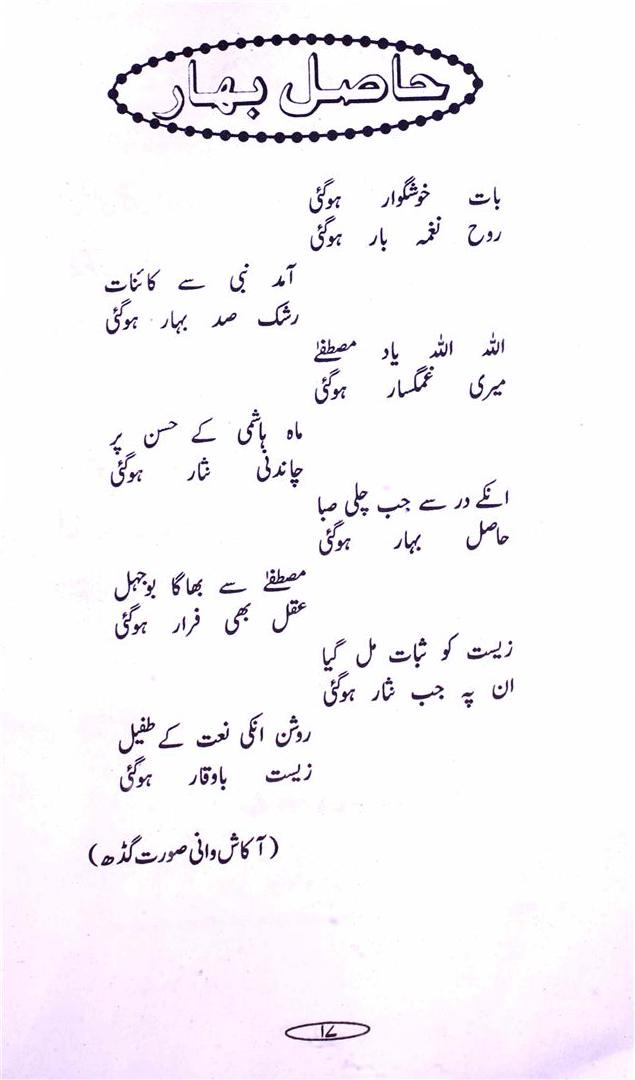 حاصل بہار
بات خوشگوار ہوگئی
روح نغمہ بار ہوگئی
آمد نبی سے کائنات
رشک صد بہار ہوگئی
اللہ اللہ یاد مصطفےٰ
میری غمگسار ہوگئی
ماہ ہاشمی کے حسن پر
چاندنی نثار ہوگئی
انکے در سے جب چلی صبا
حاصل بہار ہوگئی
مصطفےٰ سے بھاگا بوجہل
عقل بھی فرار ہوگئی
زیست کو ثبات مل گیا
ان پہ جب نثار ہوگئی
روشن انکی نعت کے طفیل
زیست باوقار ہوگئی
(آکاش وانی صورت گڈھ)
۱۷